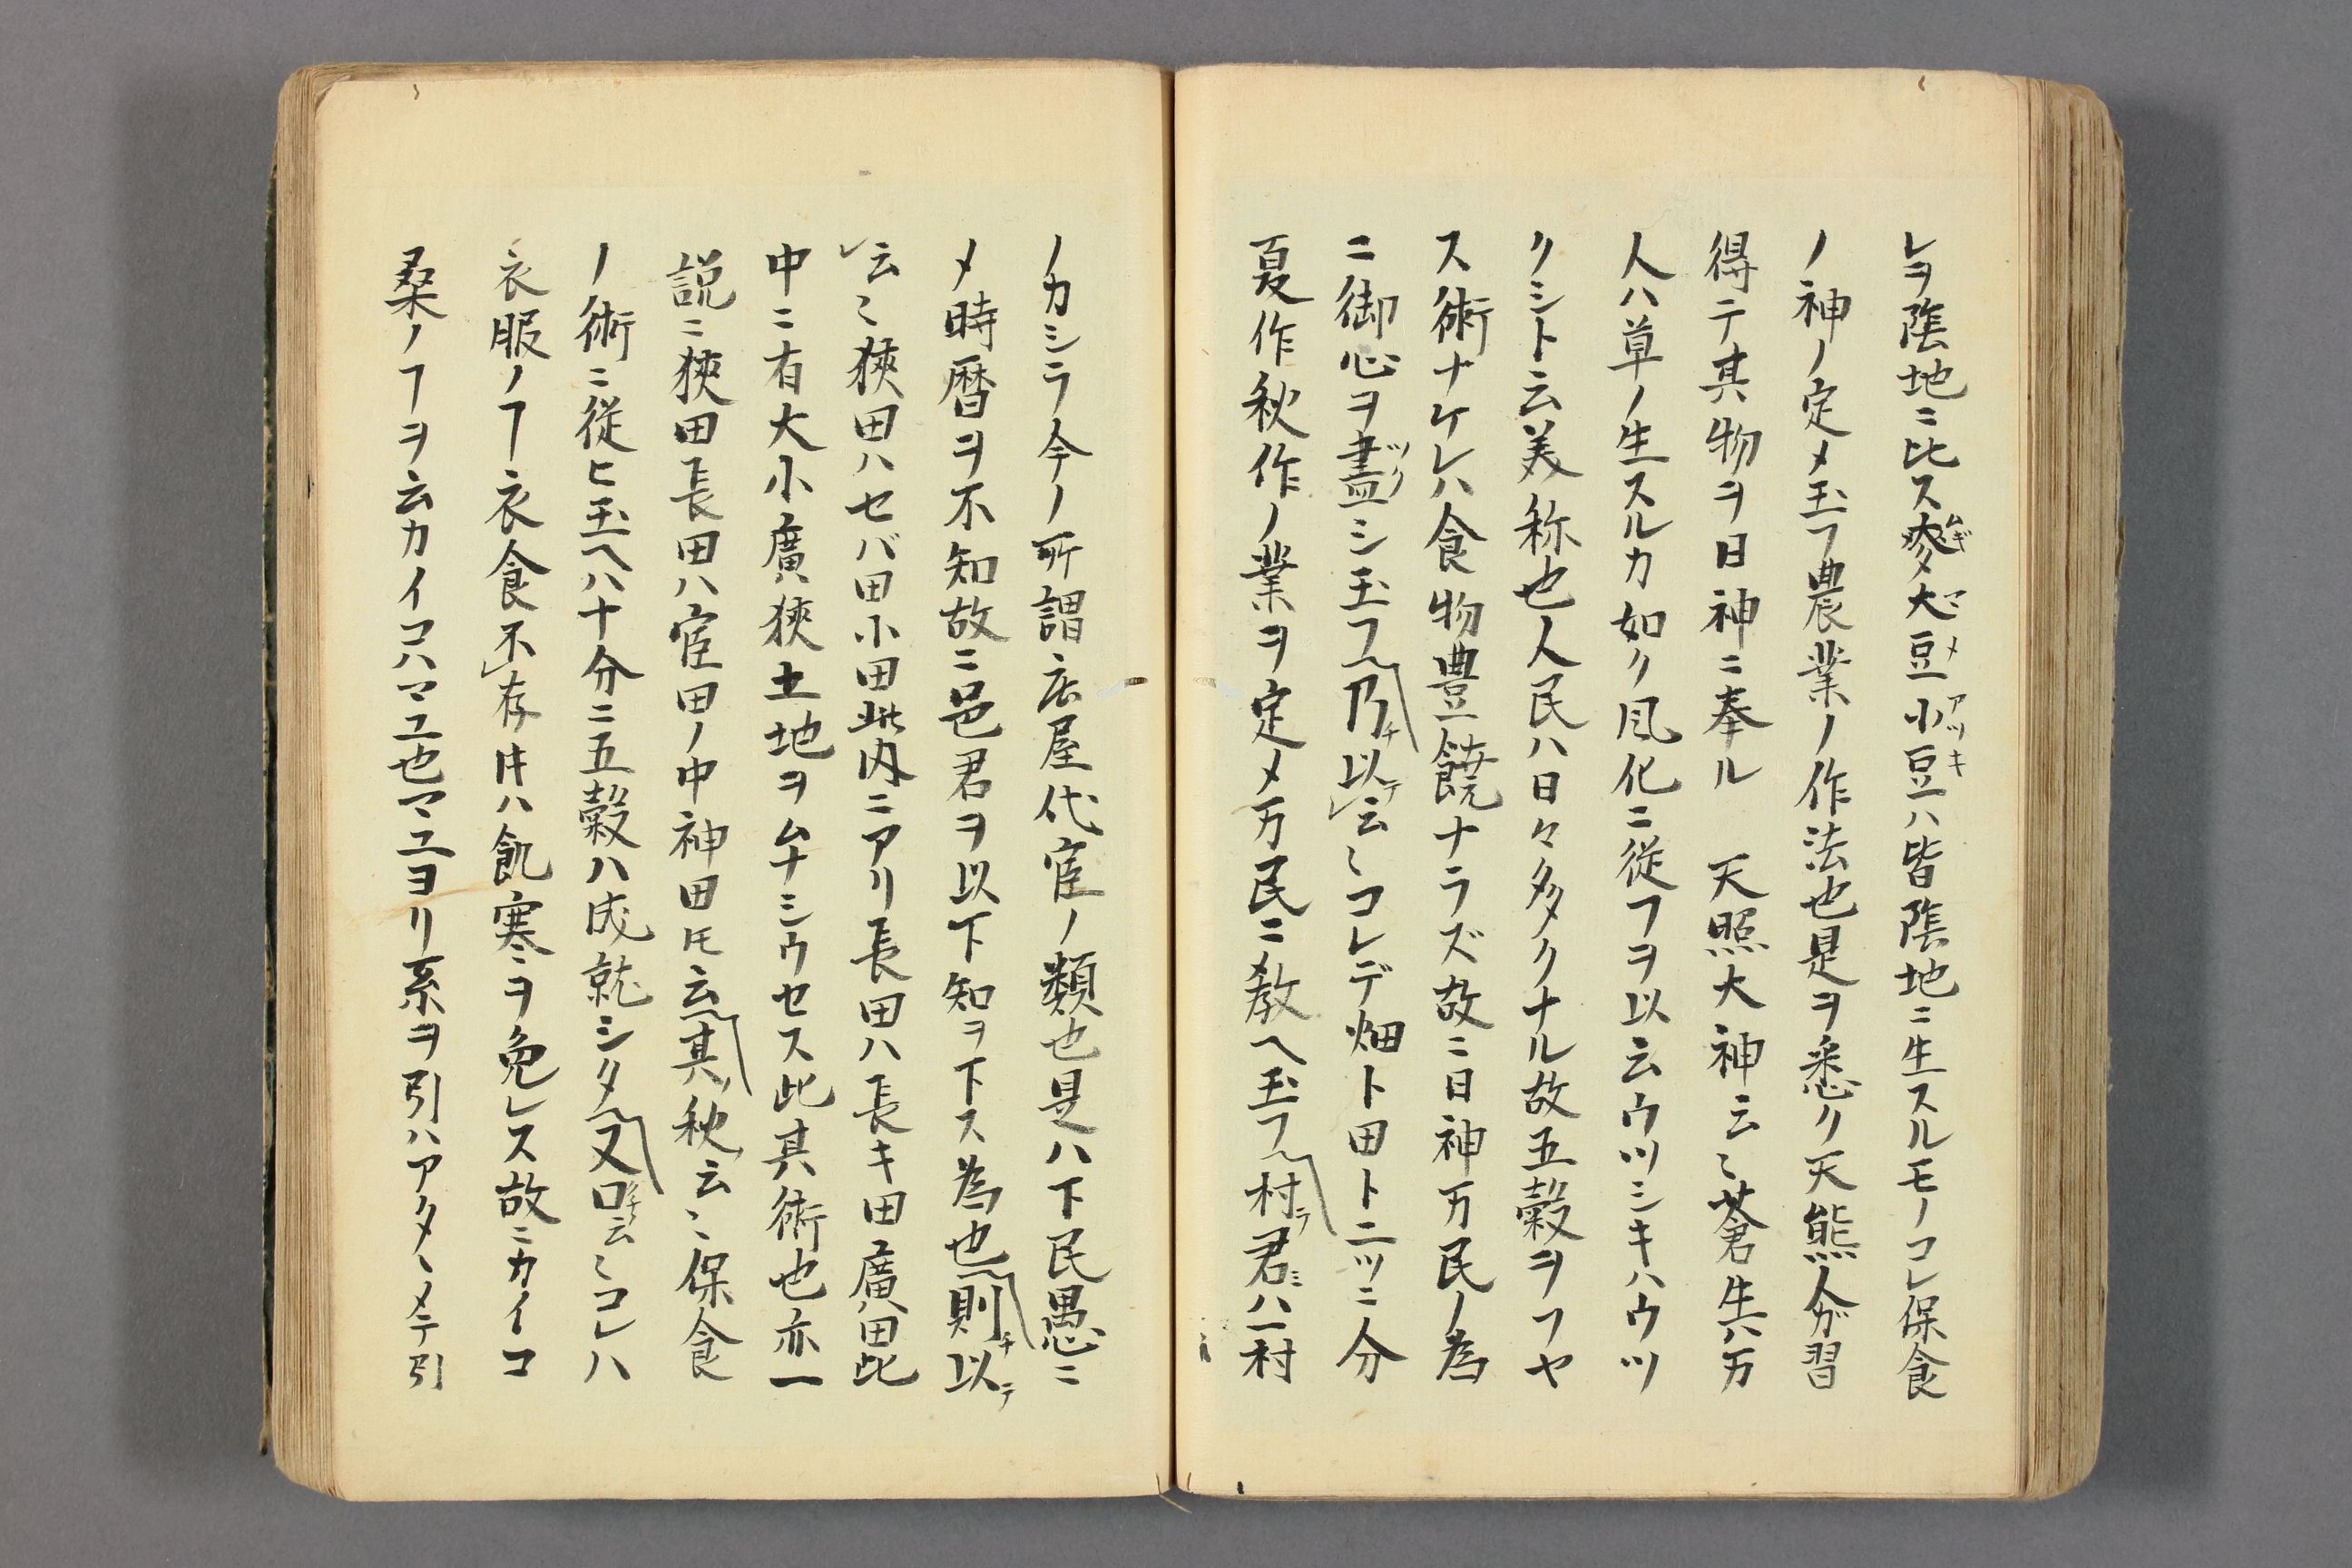 レヲ陰地ニ比ス麥ムギ大豆マメ小豆アツキハ皆陰地ニ生スルモノコレ保食
ノ神ノ定メ玉フ農業ノ作法也是ヲ悉ク天熊人ガ習
得テ其物ヲ日神ニ奉ル　天照大神云〻蒼生ハ万
人ハ草ノ生スルカ如ク風化ニ從フヲ以云ウツシキハウツ
クシト云美称也人民ハ日々多クナル故五穀ヲフヤ
ス術ナケレハ食物豊饒ナラズ故ニ日神万民ノ為
ニ御心ヲ盡ツクシ玉フ乃チ以テ云〻コレデ畑ト田ト二ツニ分
夏作秋作ノ業ヲ定メ万民ニ教ヘ玉フ村ラ君ミハ一村
ノカシラ今ノ所謂庄屋代官ノ類也是ハ下民愚ニ
メ時暦ヲ不知故ニ邑君ヲ以下知ヲ下ス為也則チ以テ
云〻狹田ハセバ田小田此内ニアリ長田ハ長キ田廣田此
中ニ有大小廣狹土地ヲムナシウセス此其術也亦一
説ニ狹田長田ハ官田ノ中神田トモ云其ノ秋云〻保食
ノ術ニ從ヒ玉ヘハ十分ニ五穀ハ成就シタ又口云〻コレハ
衣服ノヿ衣食不存トキハ飢寒ヲ免レス故ニカイコ
桑ノヿヲ云カイコハマユ也マユヨリ糸ヲ引ハアタヽメテ引